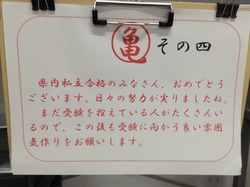 亀 その四
県内私立合格のみなさん、おめでとう
ございます。日々の努力が実りましたね。
まだ受験を控えている人がたくさんい
るので、この後も受験に向かう良い雰囲
気作りをお願いします。